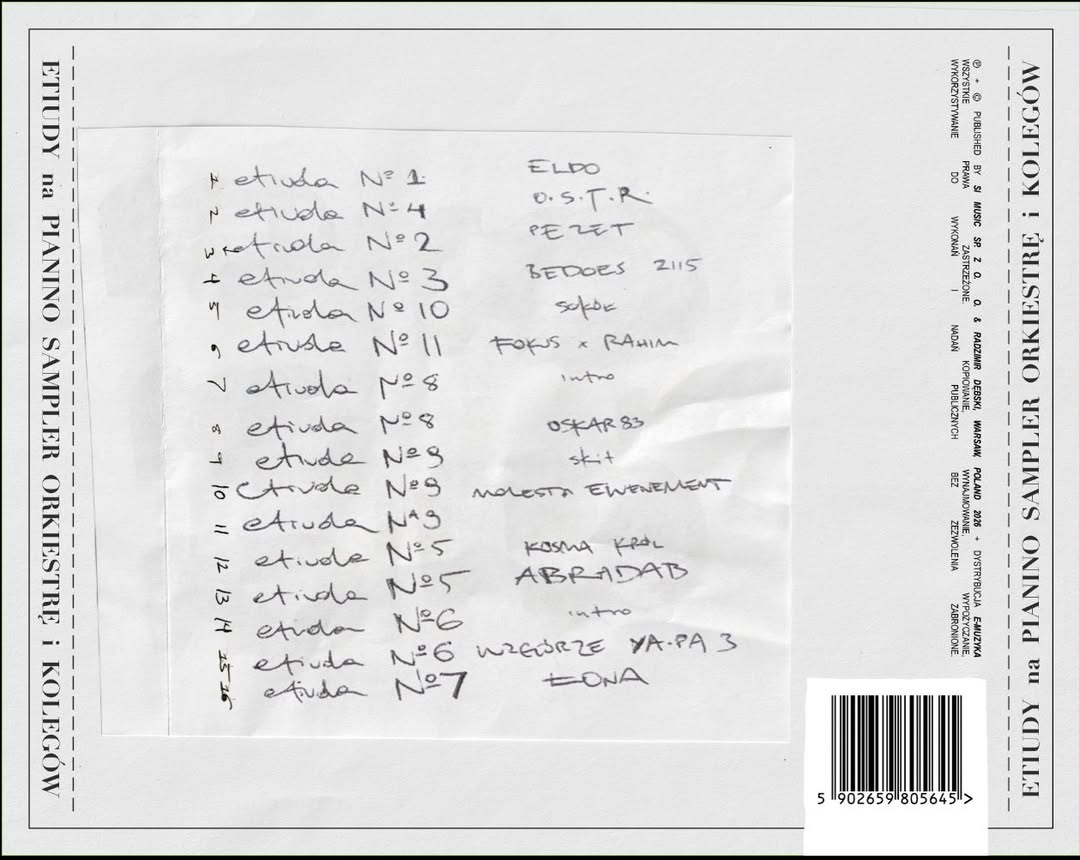 ETIUDY na PIANINO SAMPLER ORKIESTRĘ i KOLEGÓW
1 etiuda Nº 1 ELDO
2 etiuda Nº 4 O.S.T.R.
3 etiuda Nº 2 PEZET
4 etiuda Nº 3 BEDOES 2115
5 etiuda Nº 10 sokół
6 etiuda Nº 11 FOKUS x RAHIM
7 etiuda Nº 8 intro
8 etiuda Nº 8 OSKAR83
9 etiuda Nº 9 skit
10 etiuda Nº 9 MOLESTA EWENEMENT
11 etiuda Nº 9
12 etiuda Nº 5 KOSMA KRÓL
13 etiuda Nº 5 ABRADAB
14 etiuda Nº 6 intro
15 etiuda Nº 6 WZGÓRZE YA-PA 3
16 etiuda Nº 7 ŁONA
℗ + © PUBLISHED BY SI MUSIC SP. Z O. O. & RADZIMIR DĘBSKI, WARSAW, POLAND 2026 + DYSTRYBUCJA E-MUZYKA
WSZYSTKIE PRAWA ZASTRZEŻONE. KOPIOWANIE, WYNAJMOWANIE, WYPOŻYCZANIE,
WYKORZYSTYWANIE DO WYKONAŃ I NADAŃ PUBLICZNYCH BEZ ZEZWOLENIA ZABRONIONE.
ETIUDY na PIANINO SAMPLER ORKIESTRĘ i KOLEGÓW
5 902659 805645 >